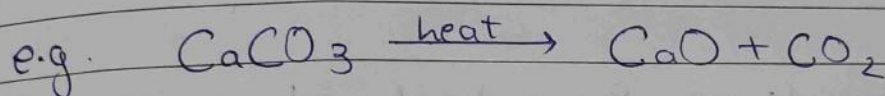 e.g. CaCO₃ heat→ CaO + CO₂